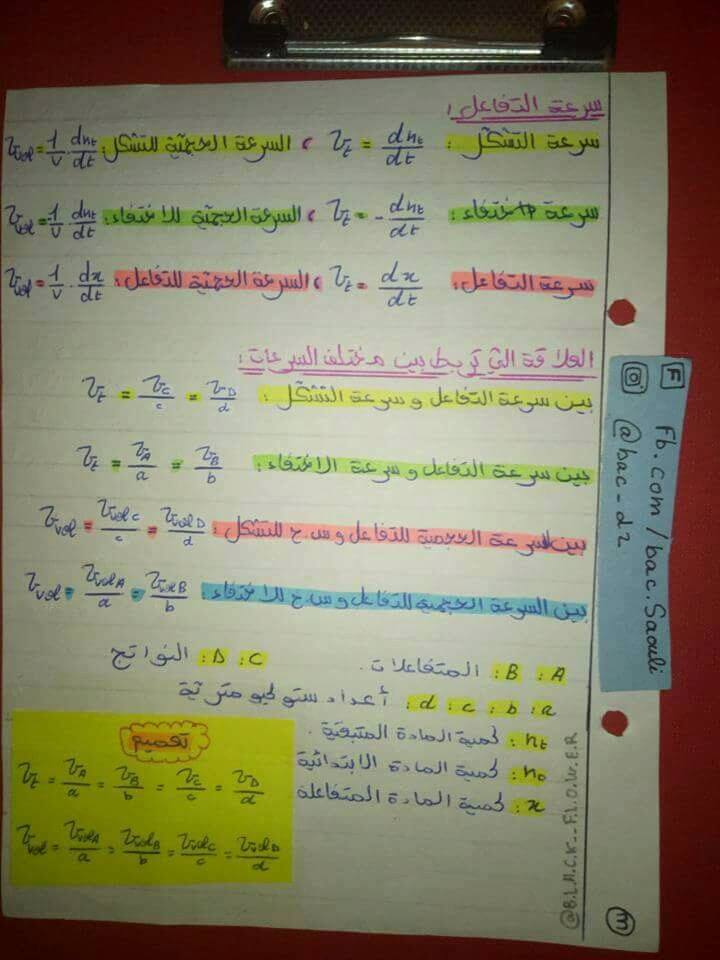 سرعة التفاعل :
سرعة التشكل : v_t = dn_t/dt ، السرعة الحجمية للتشكل : v_vol = 1/V · dn_t/dt
سرعة الاختفاء : v_t = - dn_t/dt ، السرعة الحجمية للاختفاء : v_vol = 1/V · dn_t/dt
سرعة التفاعل : v_t = dx/dt ، السرعة الحجمية للتفاعل : v_vol = 1/V · dx/dt
العلاقة التي تربط بين مختلف السرعات :
بين سرعة التفاعل و سرعة التشكل : v_t = v_C/c = v_D/d
بين سرعة التفاعل و سرعة الاختفاء : v_t = v_A/a = v_B/b
بين السرعة الحجمية للتفاعل و س.ح للتشكل : v_vol = v_vol C/c = v_vol D/d
بين السرعة الحجمية للتفاعل و س.ح للاختفاء : v_vol = v_vol A/a = v_vol B/b
A : B : المتفاعلات . C : D : النواتج
a : b : c : d : أعداد ستوكيومترية
n_t : كمية المادة المتبقية .
n_0 : كمية المادة الابتدائية
x : كمية المادة المتفاعلة
تعميم
v_t = v_A/a = v_B/b = v_C/c = v_D/d
v_vol = v_vol A/a = v_vol B/b = v_vol C/c = v_vol D/d
F Fb.com/bac.Saouli
@bac_d2
@B.L.A.C.K--F.L.O.W.E.R
m